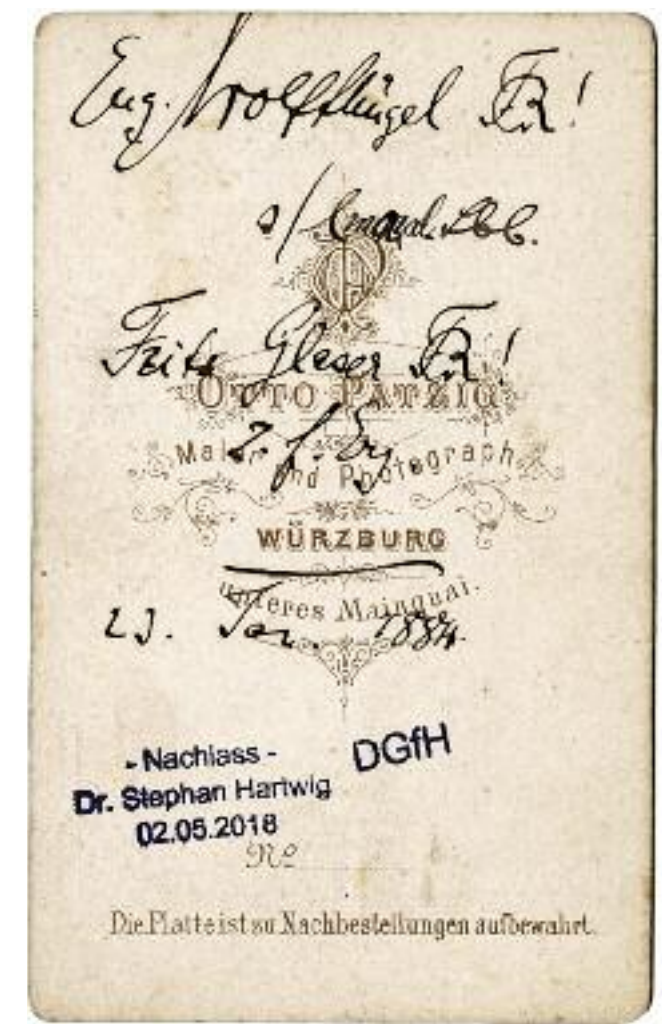 Eug. Wolffhügel FR!
s/
Fritz Gleser FR!
OTTO PATZIG
z. f. Eg
Maler und Photograph
WÜRZBURG
unteres Mainquai.
23. Jan. 1884.
- Nachlass -
DGfH
Dr. Stephan Hartwig
02.05.2018
No
Die Platte ist zu Nachbestellungen aufbewahrt.